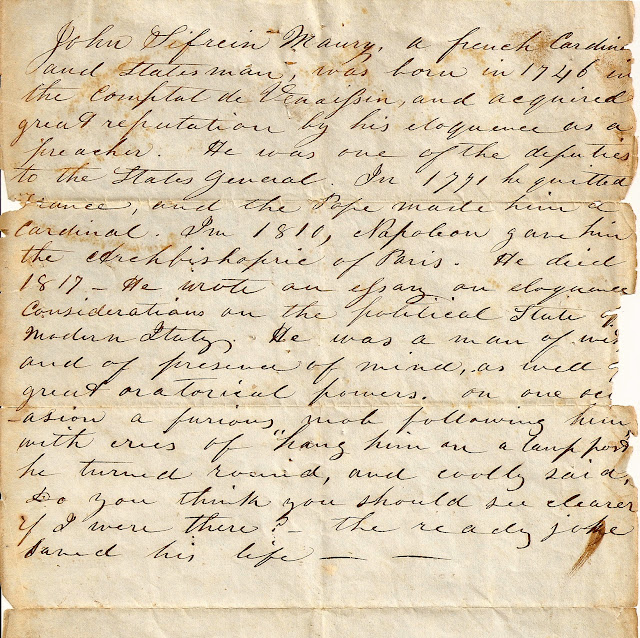 John Sifrein Maury, a french Cardin
and statesman, was born in 1746 in
the Comptat de Venaissin, and acquired
great reputation by his eloquence as a
preacher. He was one of the deputies
to the States General. In 1791 he quitted
France, and the Pope made him a
Cardinal. Im 1810, Napoleon gave him
the Archbishopric of Paris. He died
1817 – He wrote an essay on eloquence
Considerations on the political State of
Modern Italy. He was a man of wit
and of presence of mind, as well
great oratorical powers. on one occ
asion a furious mob following him,
with cries of "hang him on a lamp post
he turned round, and coolly said,
do you think you should see clearer
if I were there? – the ready joke
saved his life — —